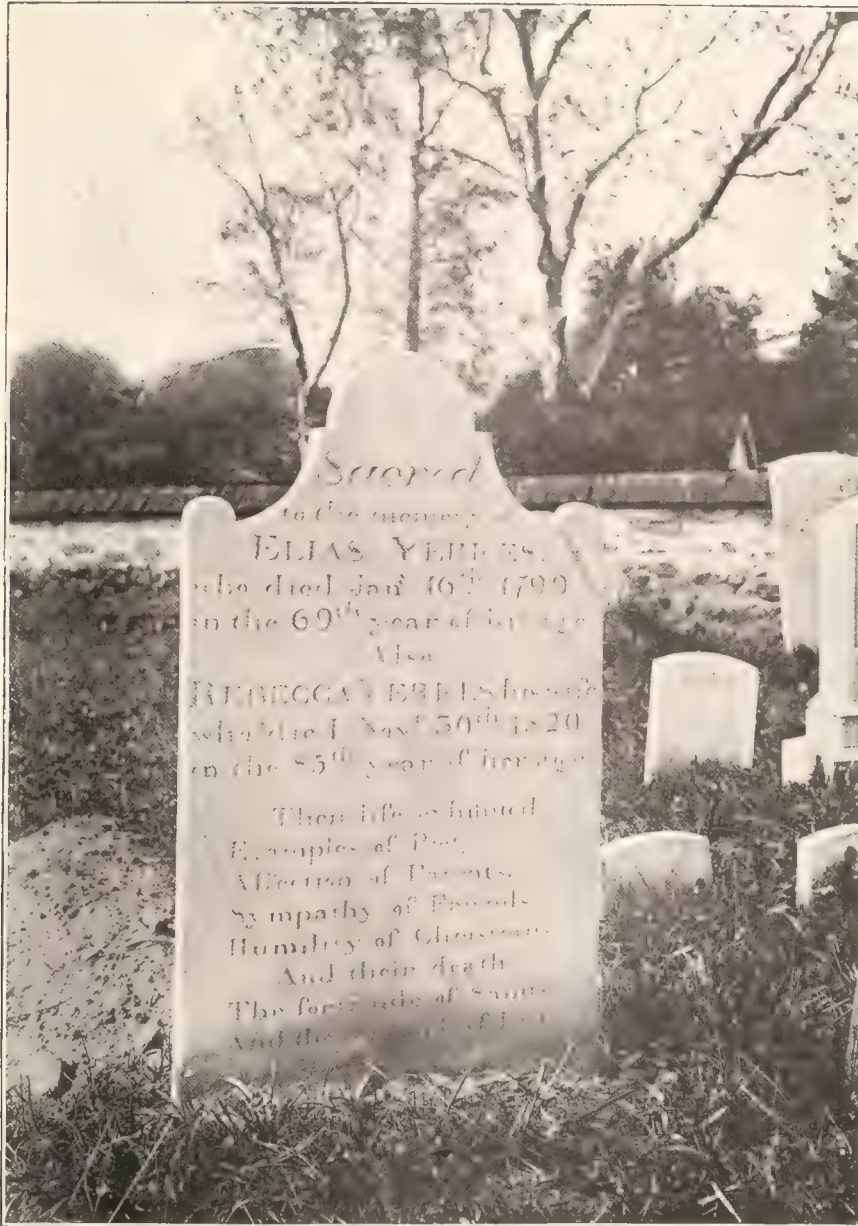 Sacred
to the memory
ELIAS YERKES,
who died Jany 16th 1799
in the 69th year of his age
Also
REBECCA YERKES his wife
who died Novr 30th 1820
in the 85th year of her age
Their life exhibited
Examples of
Affection of Parents,
Sympathy of Friends
Humility of Christians
And their death
The fortitude of Saints
And the of